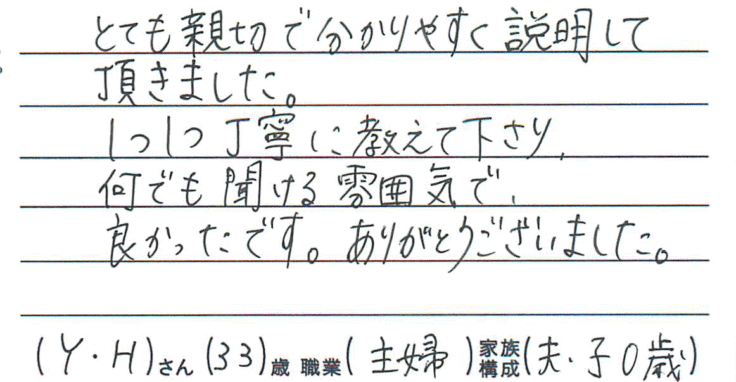 とても親切で分かりやすく説明して
頂きました。
1つ1つ丁寧に教えて下さり、
何でも聞ける雰囲気で、
良かったです。ありがとうございました。
(Y・H)さん(33)歳 職業(主婦)家族構成(夫・子0歳)